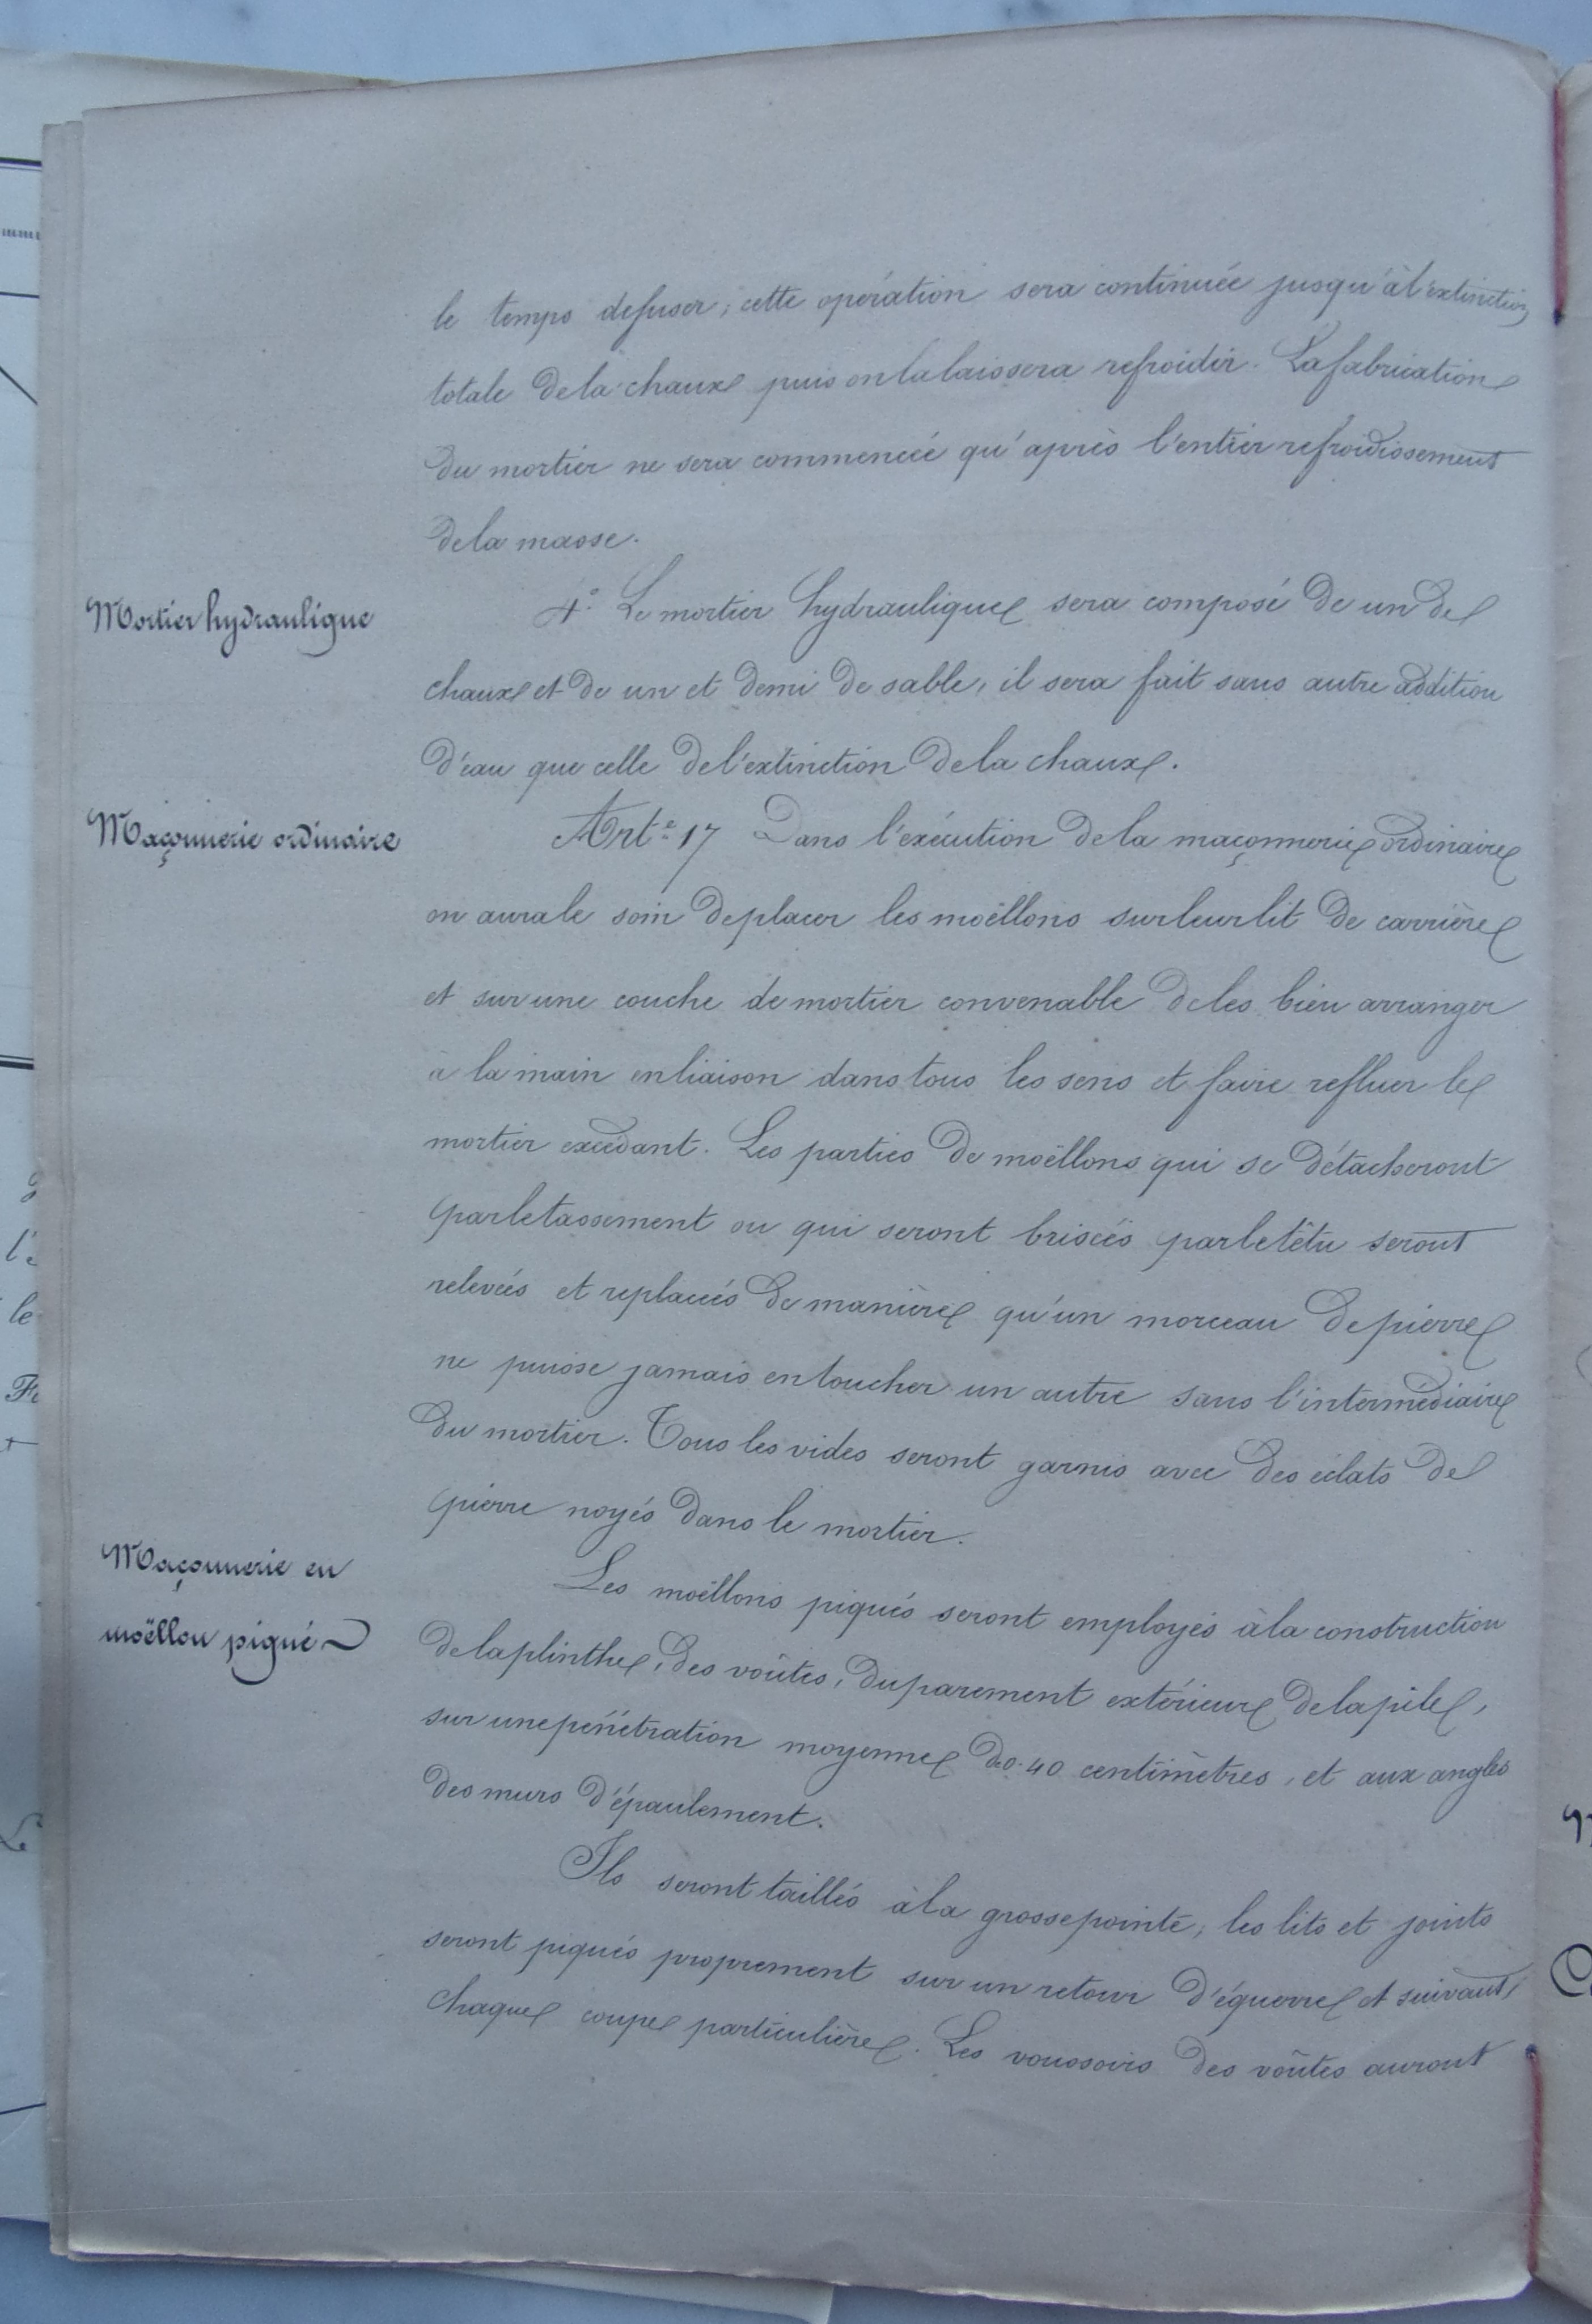 le temps de fuser ; cette opération sera continuée jusqu'à l'extinction
totale de la chaux puis on la laissera refroidir. La fabrication
du mortier ne sera commencée qu'après l'entier refroidissement
de la masse.
Mortier hydraulique
4° Le mortier hydraulique sera composé de un de
chaux et de un et demi de sable, il sera fait sans autre addition
d'eau que celle de l'extinction de la chaux.
Maçonnerie ordinaire
Art.e 17 Dans l'exécution de la maçonnerie ordinaire
on aura le soin de placer les moëllons sur leur lit de carrière
et sur une couche de mortier convenable de les bien arranger
à la main en liaison dans tous les sens et faire refluer le
mortier excédant. Les parties de moëllons qui se détacheront
par le tassement ou qui seront brisées par le têtu seront
relevées et replacées de manière qu'un morceau de pierre
ne puisse jamais en toucher un autre sans l'intermédiaire
du mortier. Tous les vides seront garnis avec des éclats de
pierre noyés dans le mortier.
Maçonnerie en
moëllon piqué
Les moëllons piqués seront employés à la construction
de la plinthe, des voûtes, du parement extérieur de la pile,
sur une pénétration moyenne de 0.40 centimètres, et aux angles
des murs d'épaulement.
Ils seront taillés à la grosse pointe, les lits et joints
seront piqués proprement sur un retour d'équerre et suivant
chaque coupe particulière. Les voussoirs des voûtes auront